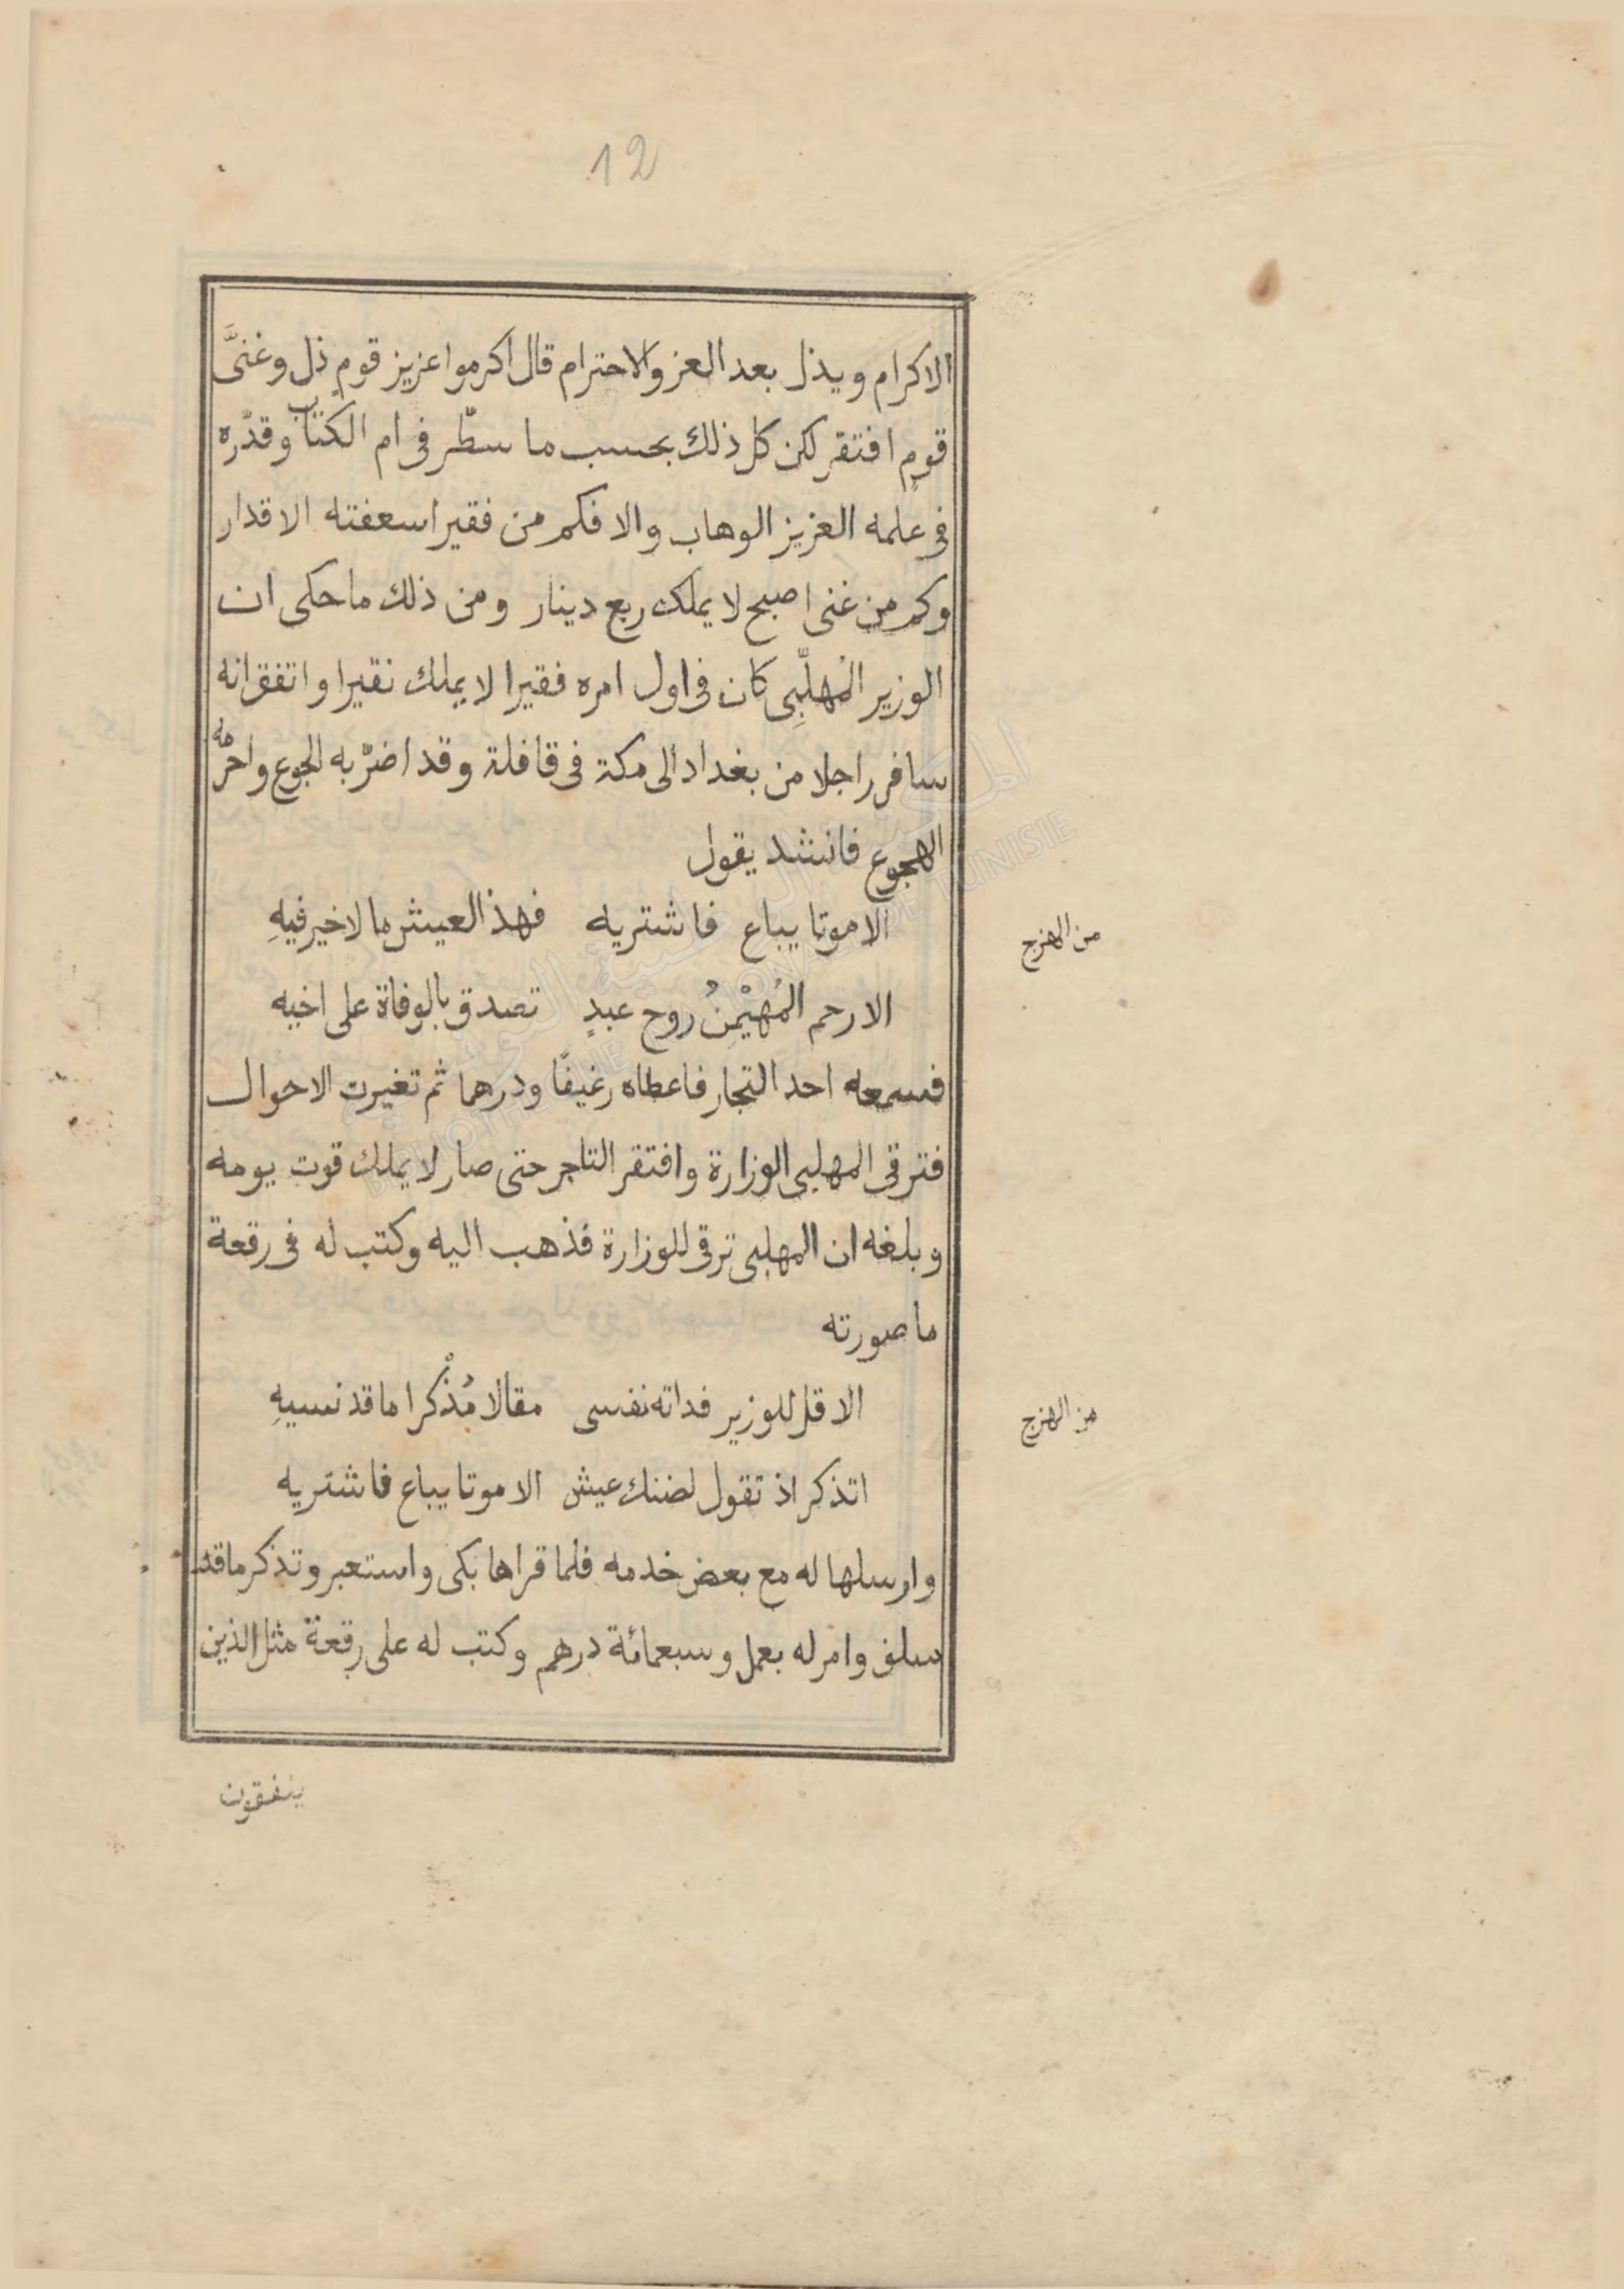 12
الاكرام ويذل بعد العز والاحترام قال اكرموا عزيز قوم ذل وغنىَّ
قوم افتقر لكن كل ذلك بحسب ما سطّر فى ام الكتاب وقدّره
فى علمه العزيز الوهاب والا فكم من فقير اسعفته الاقدار
وكم من غنى اصبح لا يملك ربع دينار ومن ذلك ما حكى ان
الوزير المُهلّبِى كان فى اول امره فقيرا لا يملك نقيرا واتفق انه
سافر راجلا من بغداد الى مكة فى قافلة وقد اضرّ به الجوع واحرّمه
الهجوع فانشد يقول
الا موتا يباع فاشتريه فهذ العيش ما لا خير فيهِ
من الهزج
الا رحم المُهيْمنُ روح عبدٍ تصدق بالوفاة على اخيه
فسمعه احد التجار فاعطاه رغيفًا ودرهما ثم تغيرت الاحوال
فترقى المهلبى الوزارة وافتقر التاجر حتى صار لا يملك قوت يومه
وبلغه ان المهلبى ترقى للوزارة فذهب اليه وكتب له فى رقعة
ما صورته
الا قل للوزير فداته نفسى مقالا مُذْكرا ما قد نسيهِ
من الهزج
اتذكر اذ تقول لضنك عيش الا موتا يباع فاشتريه
وارسلها له مع بعض خدمه فلما قراها بكى واستعبر وتذكر ما قد
سلف وامر له بعمل وسبعمائة درهم وكتب له على رقعة مثل الذين
ينفقون
المكتبة الوطنية التونسية
BIBLIOTHEQUE NATIONALE DE TUNISIE